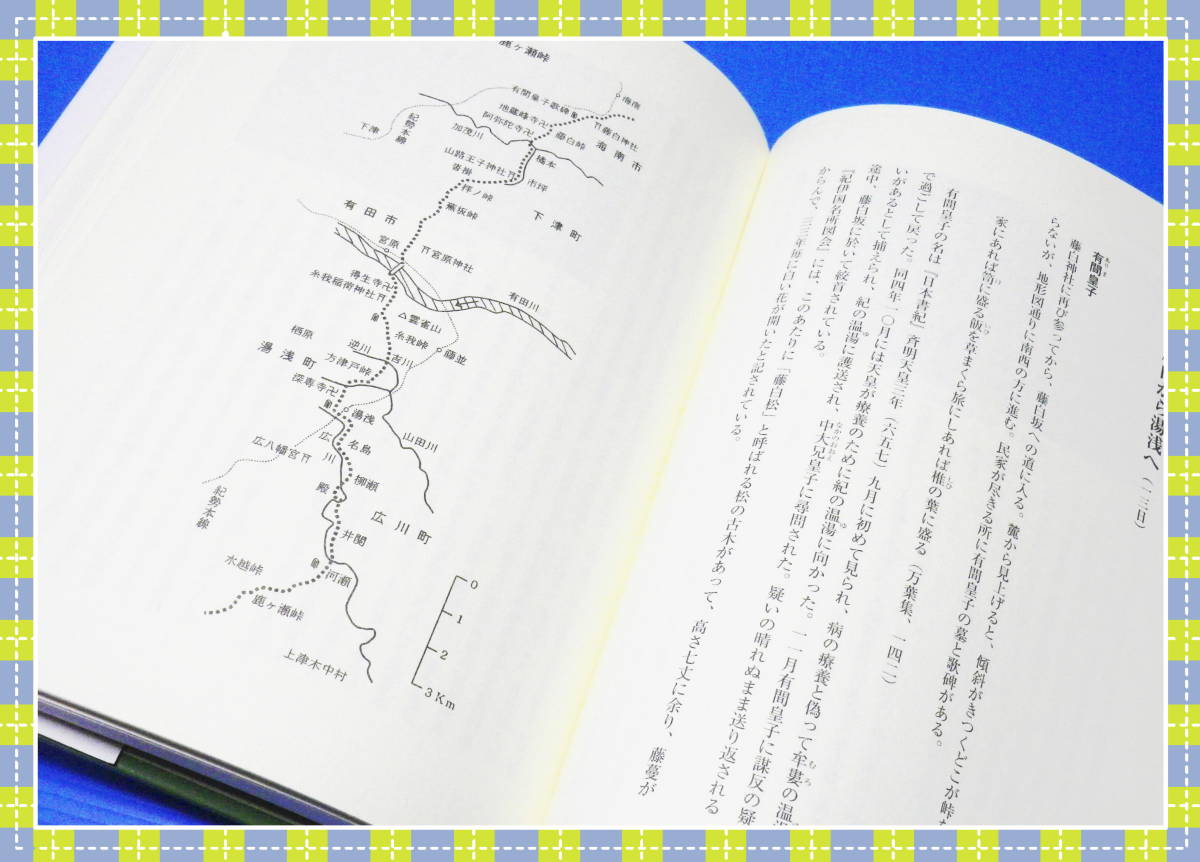 から湯浅へ(一三日)
藤白神社に再び参ってから、藤白坂への道に入る。麓から見上げると、傾斜がきつくどこが峠
らないが、地形図通りに南西の方に進む。民家が尽きる所に有間皇子の墓と歌碑がある。
有間皇子
家にあれば笥に盛る飯を草まくら旅にしあれば椎の葉に盛る(万葉集、一四二)
有間皇子の名は『日本書紀』斉明天皇三年(六五七)九月に初めて見られ、病の療養と偽って牟婁の温
で過ごして戻った。同四年一〇月には天皇が療養のために紀の温湯に向かった。一一月有間皇子に謀反の疑
いがあるとして捕えられ、紀の温湯に護送され、中大兄皇子に尋問された。疑いの晴れぬまま送り返される
途中、藤白坂に於いて絞首されている。
『紀伊国名所図会』には、このあたりに「藤白松」と呼ばれる松の古木があって、高さ七丈に余り、藤蔓が
からんで、三三年毎に白い花が開いたと記されている。
鹿ヶ瀬峠
海南
有間皇子歌碑
地蔵峰寺卍
阿弥陀寺卍
藤白神社
藤白峠
海南市
下津
紀勢本線
加茂川
橘本
山路王子神社
市坪
沓掛
拝ノ峠
下津町
蕪坂峠
有田市
宮原
宮原神社
得生寺卍
糸我稲荷神社
有田川
△雲雀山
糸我峠
藤並
栖原
逆川
吉川
湯浅町
方津戸峠
深専寺卍
湯浅
山田川
広川
名島
広八幡宮
柳瀬
殿
広川町
紀勢本線
井関
河瀬
水越峠
鹿ヶ瀬峠
上津木中村
0
1
2
3Km